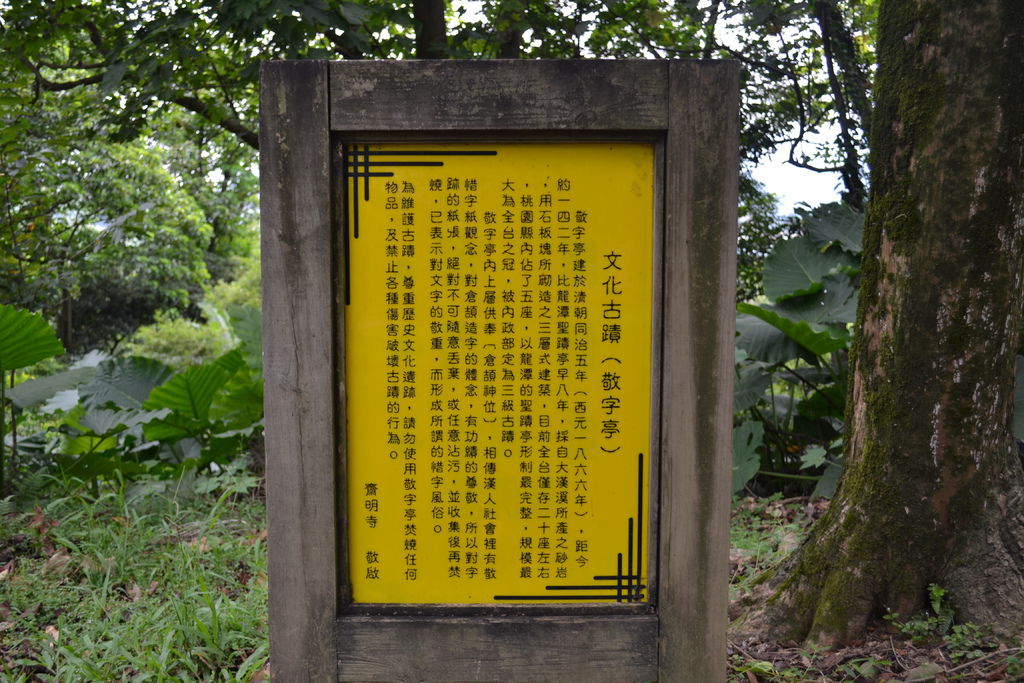 文化古蹟（敬字亭）
敬字亭建於清朝同治五年（西元一八六六年），距今
約一四二年，比龍潭聖蹟亭早八年，採自大漢溪所產之砂岩
，用石板塊所砌造之三層式建築，目前全台僅存二十座左右
，桃園縣內佔了五座，以龍潭的聖蹟亭形制最完整，規模最
大為全台之冠，被內政部定為三級古蹟。
敬字亭內上層供奉〔倉頡神位〕，相傳漢人社會裡有敬
惜字紙觀念，對倉頡造字的體念，有功蹟的尊敬，所以對字
跡的紙張，絕對不可隨意丟棄，或任意沾污，並收集後再焚
燒，已表示對文字的敬重，而形成所謂的惜字風俗。
為維護古蹟，尊重歷史文化遺跡，請勿使用敬字亭焚燒任何
物品，及禁止各種傷害破壞古蹟的行為。
齋明寺　敬啟